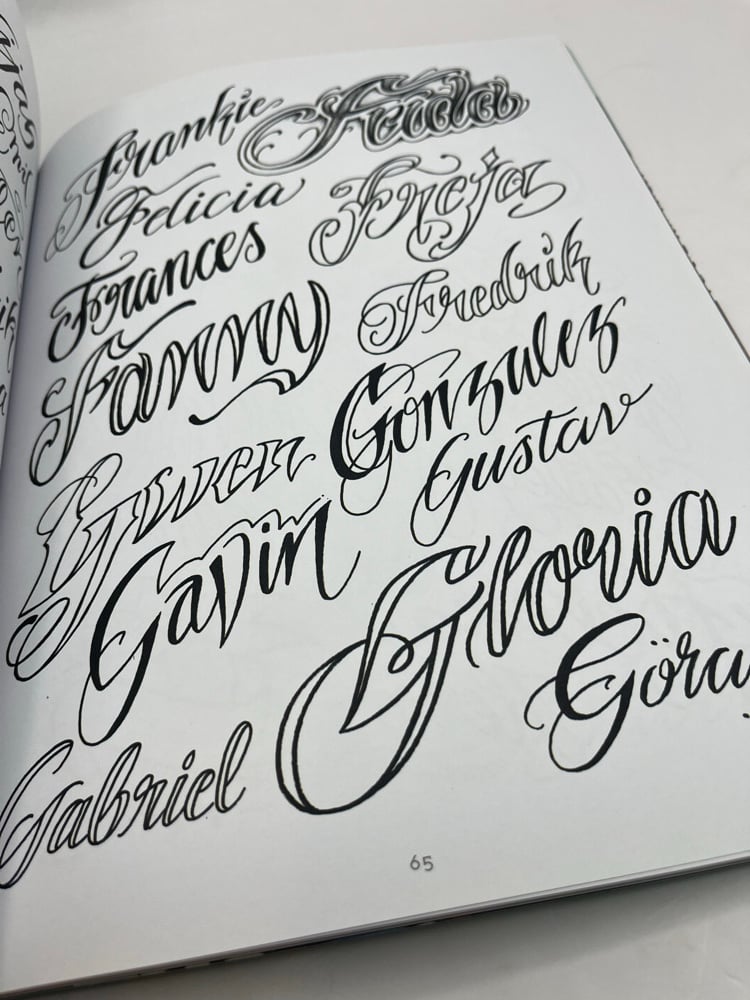 Frankie Frida
Felicia Freja
Frances
Fredrik
Fanny
Gonzulez
Gwen Gustav
Gavin
Gloria
Göra
Gabriel
65